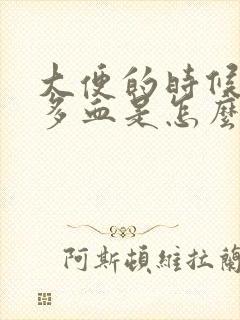 大便的時候
多血是怎麼
阿斯頓維拉蘭